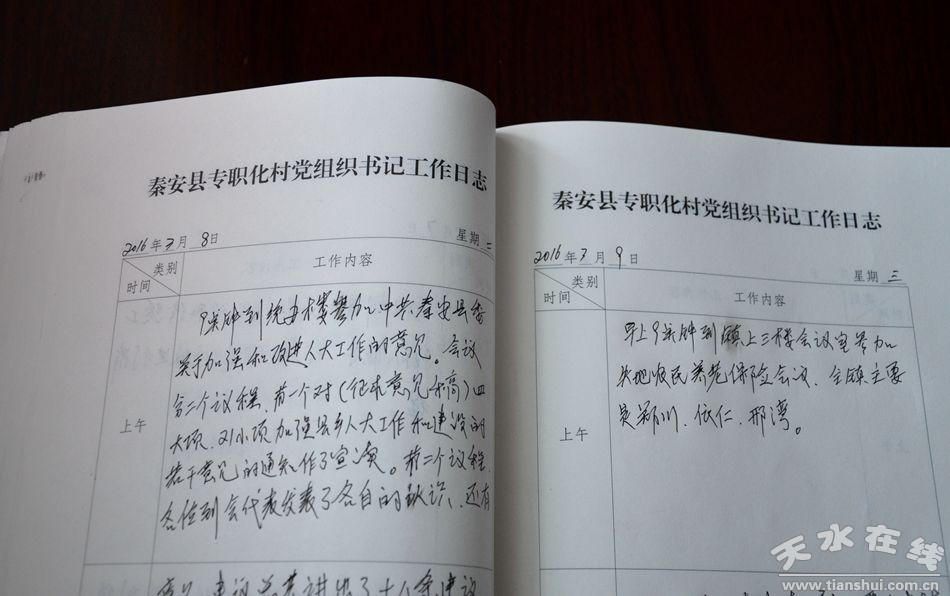 秦安县专职化村党组织书记工作日志
2016年3月8日 星期二
类别
时间
工作内容
上午
9点钟到统办楼参加中共秦安县委
关于加强和改进人大工作的意见。会议
含二个议程,第一个对(征求意见和高)四
大项、21小项加强县乡人大工作和建设的
若干意见的通知作了宣读。第二个议程,
各位到会代表发表了各自的认识、还有
秦安县专职化村党组织书记工作日志
2016年3月9日
星期三
类别
时间
工作内容
上午
早上9点钟到镇上三楼会议室参加
失地农民养老保险会议,全镇主要
是郑川、依仁、邢湾。
天水在线
www.tianshui.com.cn